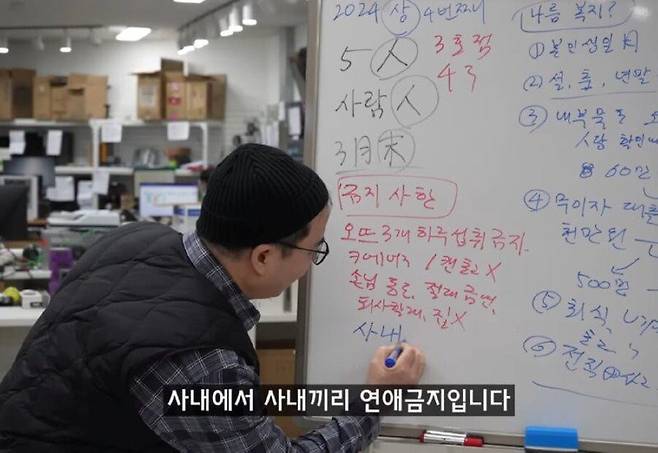 2024 상 4번째
5 人
사람 人
3月末
3호점
4구
금지 사항
오뜨 3개 하루 섭취 금지
1캔 초과 X
손님 통로, 절대 금연,
퇴사할래, 집 X
사내
나름 복지?
① 본인 생일
② 설, 추, 연말
③ 내부 물품
사람
60만
④ 무이자 대출
천만원
500만
⑤ 회식
⑥ 전직원
사내에서 사내끼리 연애금지입니다